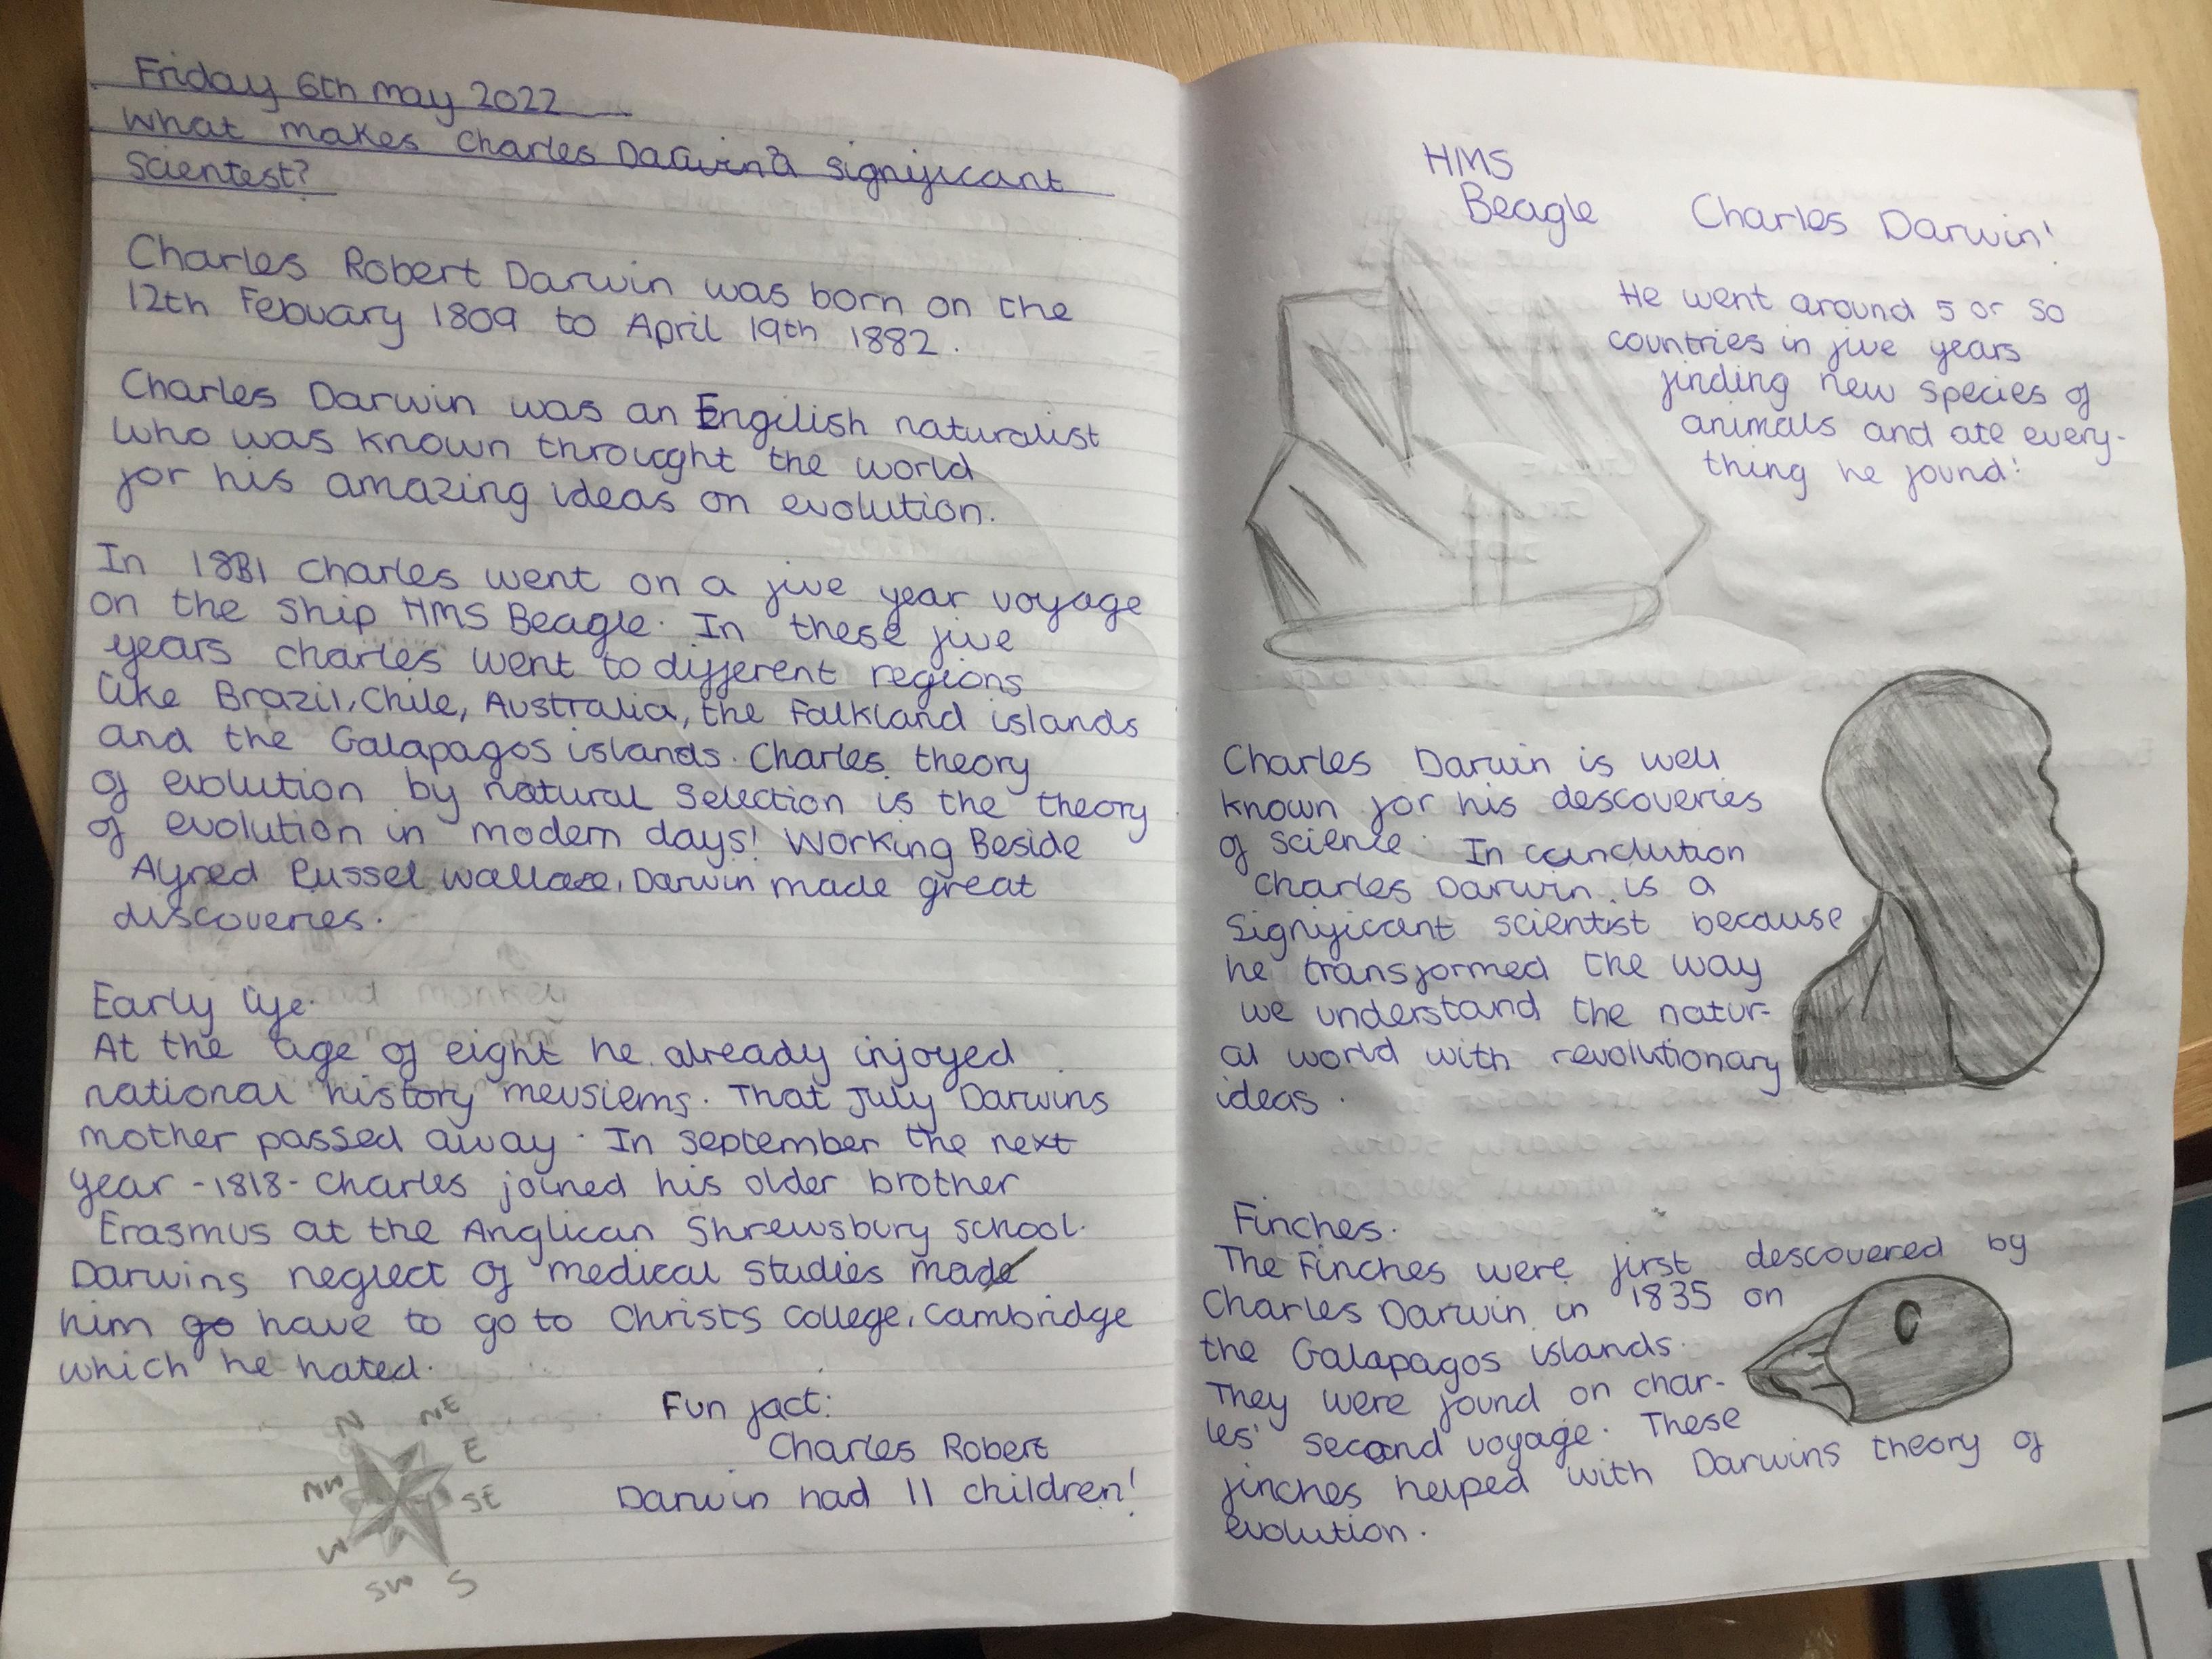 Friday 6th may 2022
What makes Charles Darwin a significant
Scientest?
Charles Robert Darwin was born on the
12th Febuuary 1809 to April 19th 1882.
Charles Darwin was an Engilish naturalist
who was known throught the world
for his amazing ideas on evolution.
In 1831 Charles went on a five year voyage
on the ship HMS Beagle. In these five
years charles went to different regions
like Brazil, Chile, Australia, the Falkland islands
and the Galapagos islands. Charles theory
of evolution by natural selection is the theory
of evolution in modern days! Working Beside
Alfred Russel Wallace, Darwin made great
discoveries.
Early life.
At the age of eight he already injoyed
national history meusiems. That July Darwins
mother passed away. In September the next
year -1818- Charles joined his older brother
Erasmus at the Anglican Shrewsbury school.
Darwins neglect of medical studies made
him go have to go to Christs College, Cambridge
which he hated.
Fun fact:
Charles Robert
Darwin had 11 children!
N
NE
E
SE
S
SW
W
NW
HMS
Beagle
Charles Darwin!
He went around 5 or so
countries in five years
finding new species of
animals and ate every-
thing he found!
Charles Darwin is well
known for his descoveries
of science. In conclution
Charles Darwin is a
significant scientist because
he transformed the way
we understand the natur-
al world with revolutionary
ideas.
Finches.
The Finches were first descovered by
Charles Darwin in 1835 on
the Galapagos islands.
They were found on char-
les' second voyage. These
finches helped with Darwins theory of
evolution.